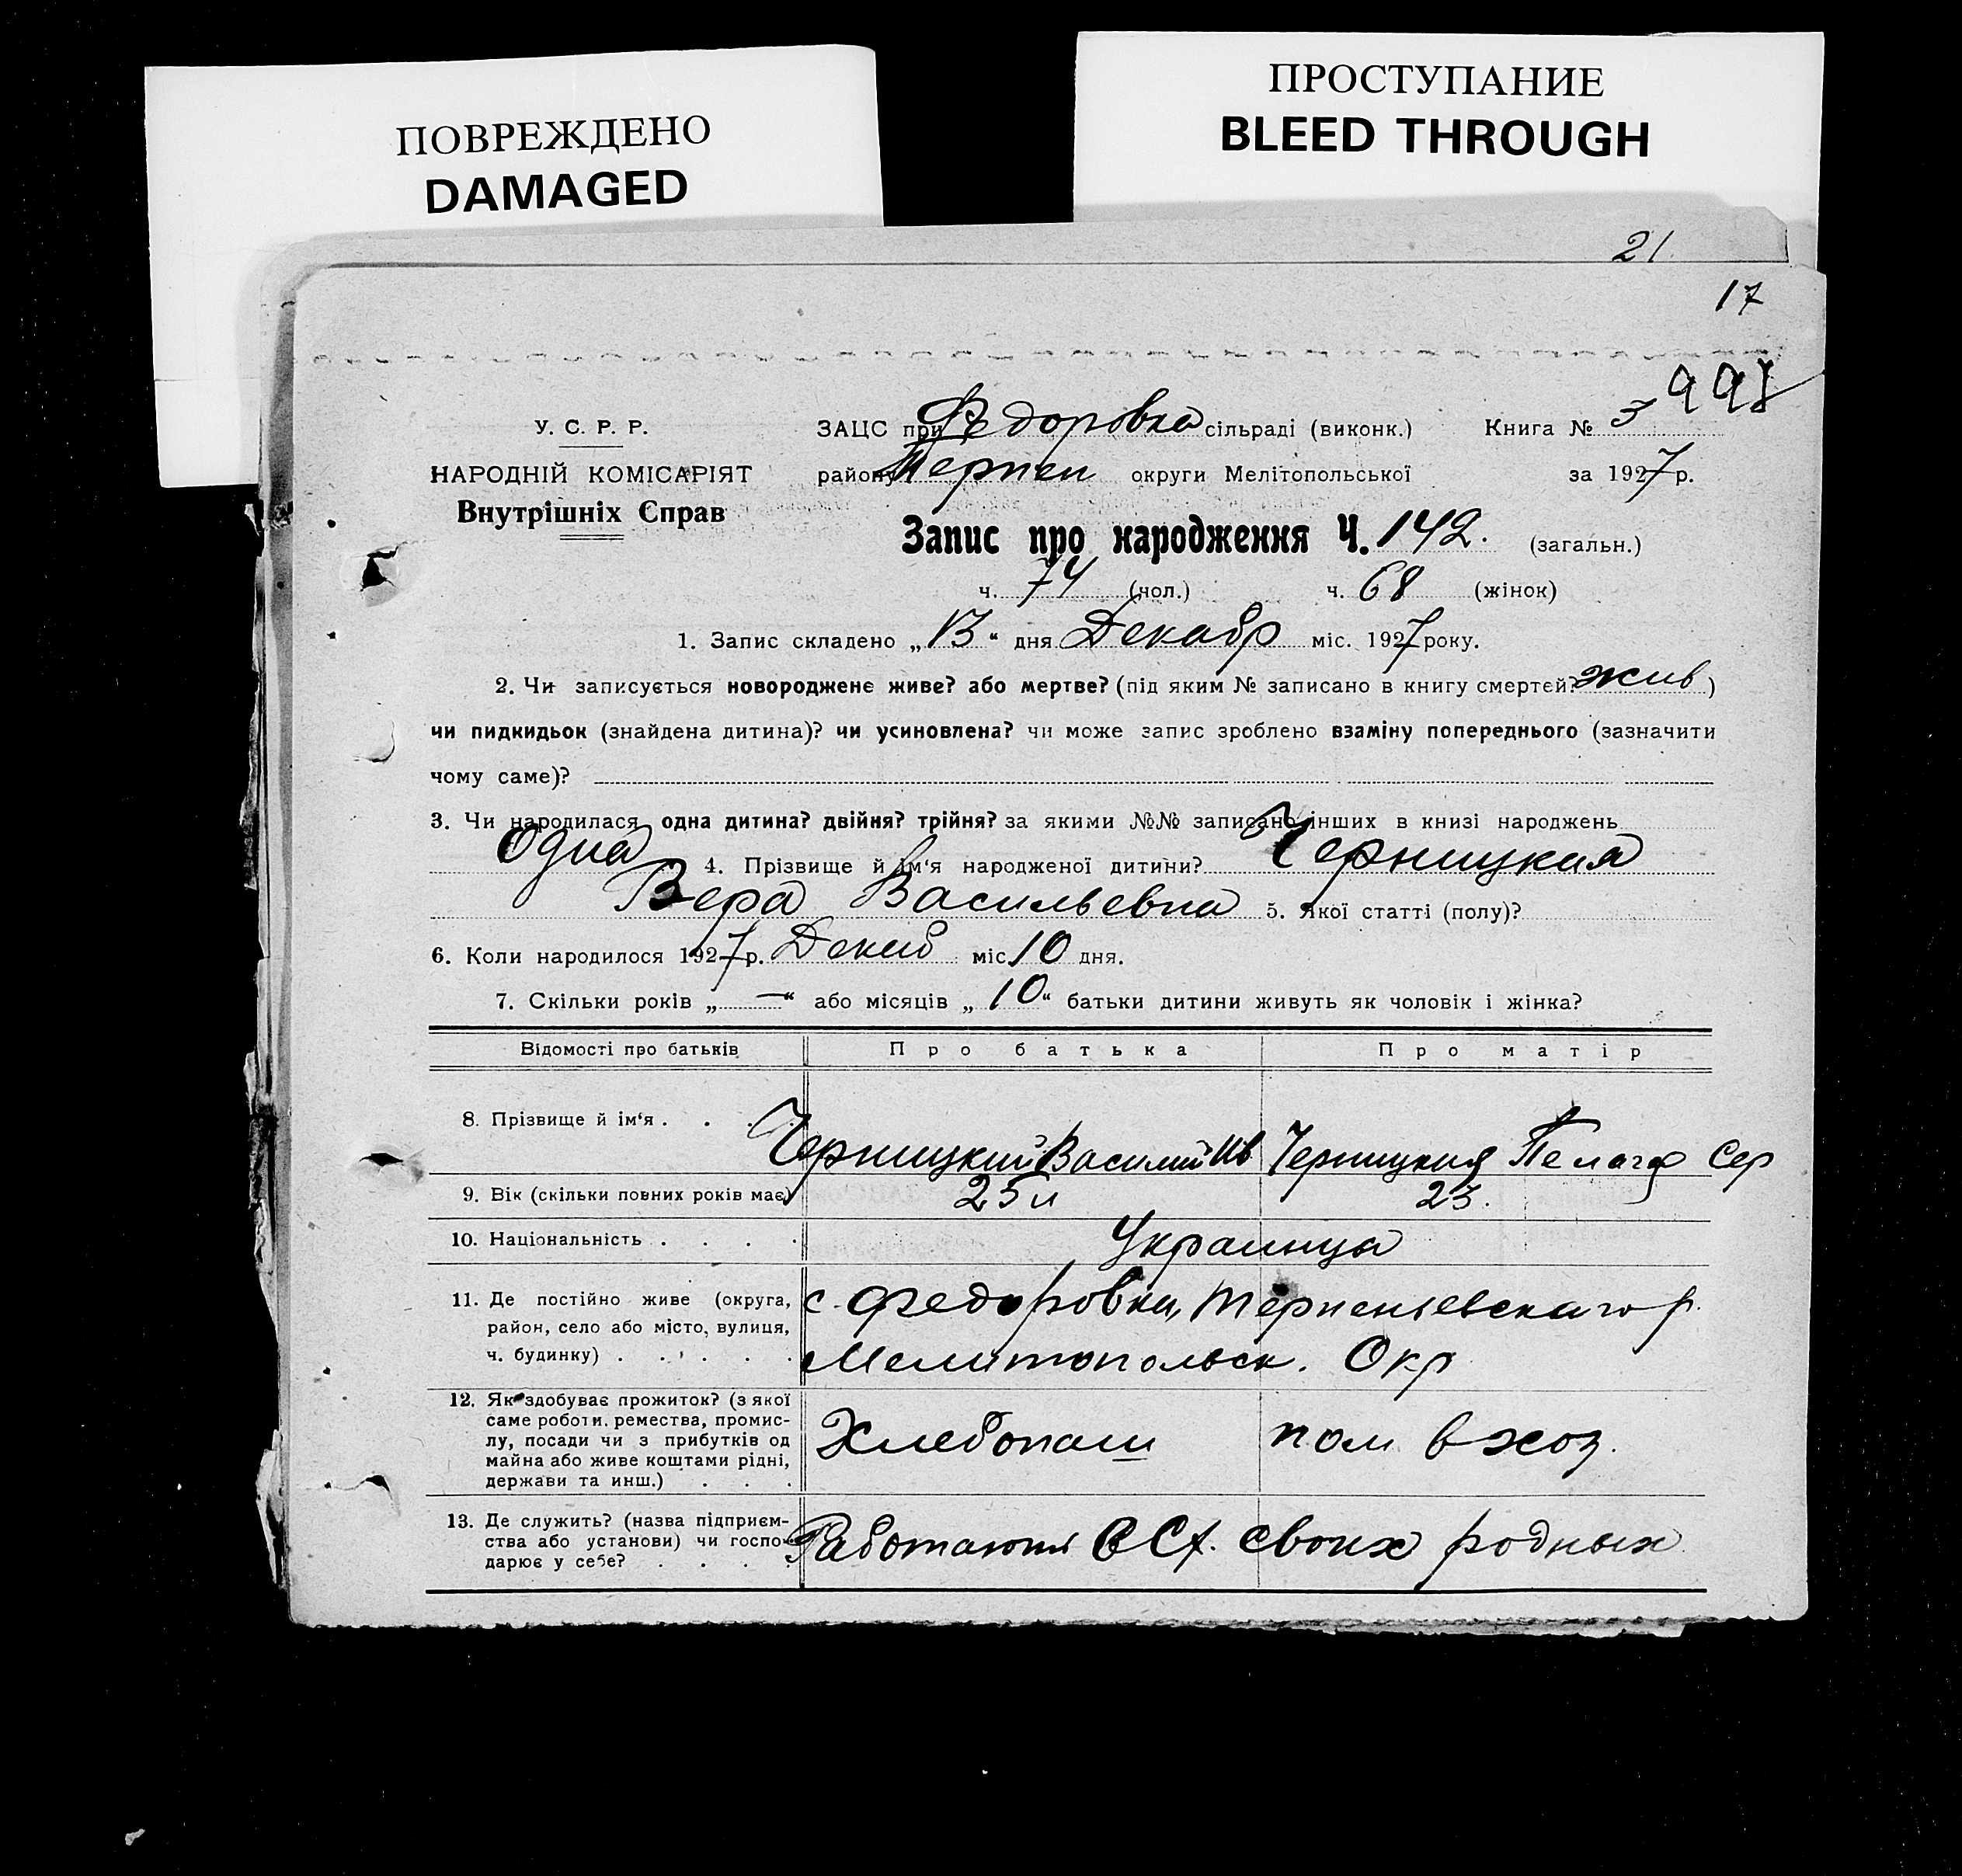 ПОВРЕЖДЕНО
DAMAGED
ПРОСТУПАНИЕ
BLEED THROUGH
21
17
997
У. С. Р. Р.
НАРОДНІЙ КОМІСАРІЯТ
Внутрішніх Справ
ЗАЦС при Федоровка сільраді (виконк.) Книга № 3
району Терпен округи Мелітопольської за 1927 р.
Запис про народження Ч. 142. (загальн.)
ч. 74 (чол.) ч. 68 (жінок)
1. Запис складено „13“ дня Декабр міс. 1927 року.
2. Чи записується новороджене живе? або мертве? (під яким № записано в книгу смертей? жив)
чи пидкидьок (знайдена дитина)? чи усиновлена? чи може запис зроблено взаміну попереднього (зазначити
чому саме)?
3. Чи народилася одна дитина? двійня? трійня? за якими №№ записано інших в книзі народжень
Одна 4. Прізвище й ім‘я народженої дитини? Черницкая
Вера Васильевна 5. Якої статті (полу)?
6. Коли народилося 1927 р. Декаб міс. 10 дня.
7. Скільки років „—“ або місяців „10“ батьки дитини живуть як чоловік і жінка?
Відомості про батьків Про батька Про матір
8. Прізвище й ім‘я . . . Черницкий Василий Ив Черницкая Пелагея Сер
9. Вік (скільки повних років має) 25 л 23.
10. Національність . . . . Украинца
11. Де постійно живе (округа,
район, село або місто, вулиця,
ч. будинку) . . . . .
с. Федоровка, Терпеньевскаго р.
Мелитопольск. Окр
12. Як здобуває прожиток? (з якої
саме роботи, ремества, промис-
лу, посади чи з прибутків од
майна або живе коштами рідні,
держави та инш.) . . .
Хлебопаш пом в хоз.
13. Де служить? (назва підприєм-
ства або установи) чи госпо-
дарює у себе? . . . .
Работают своих родных